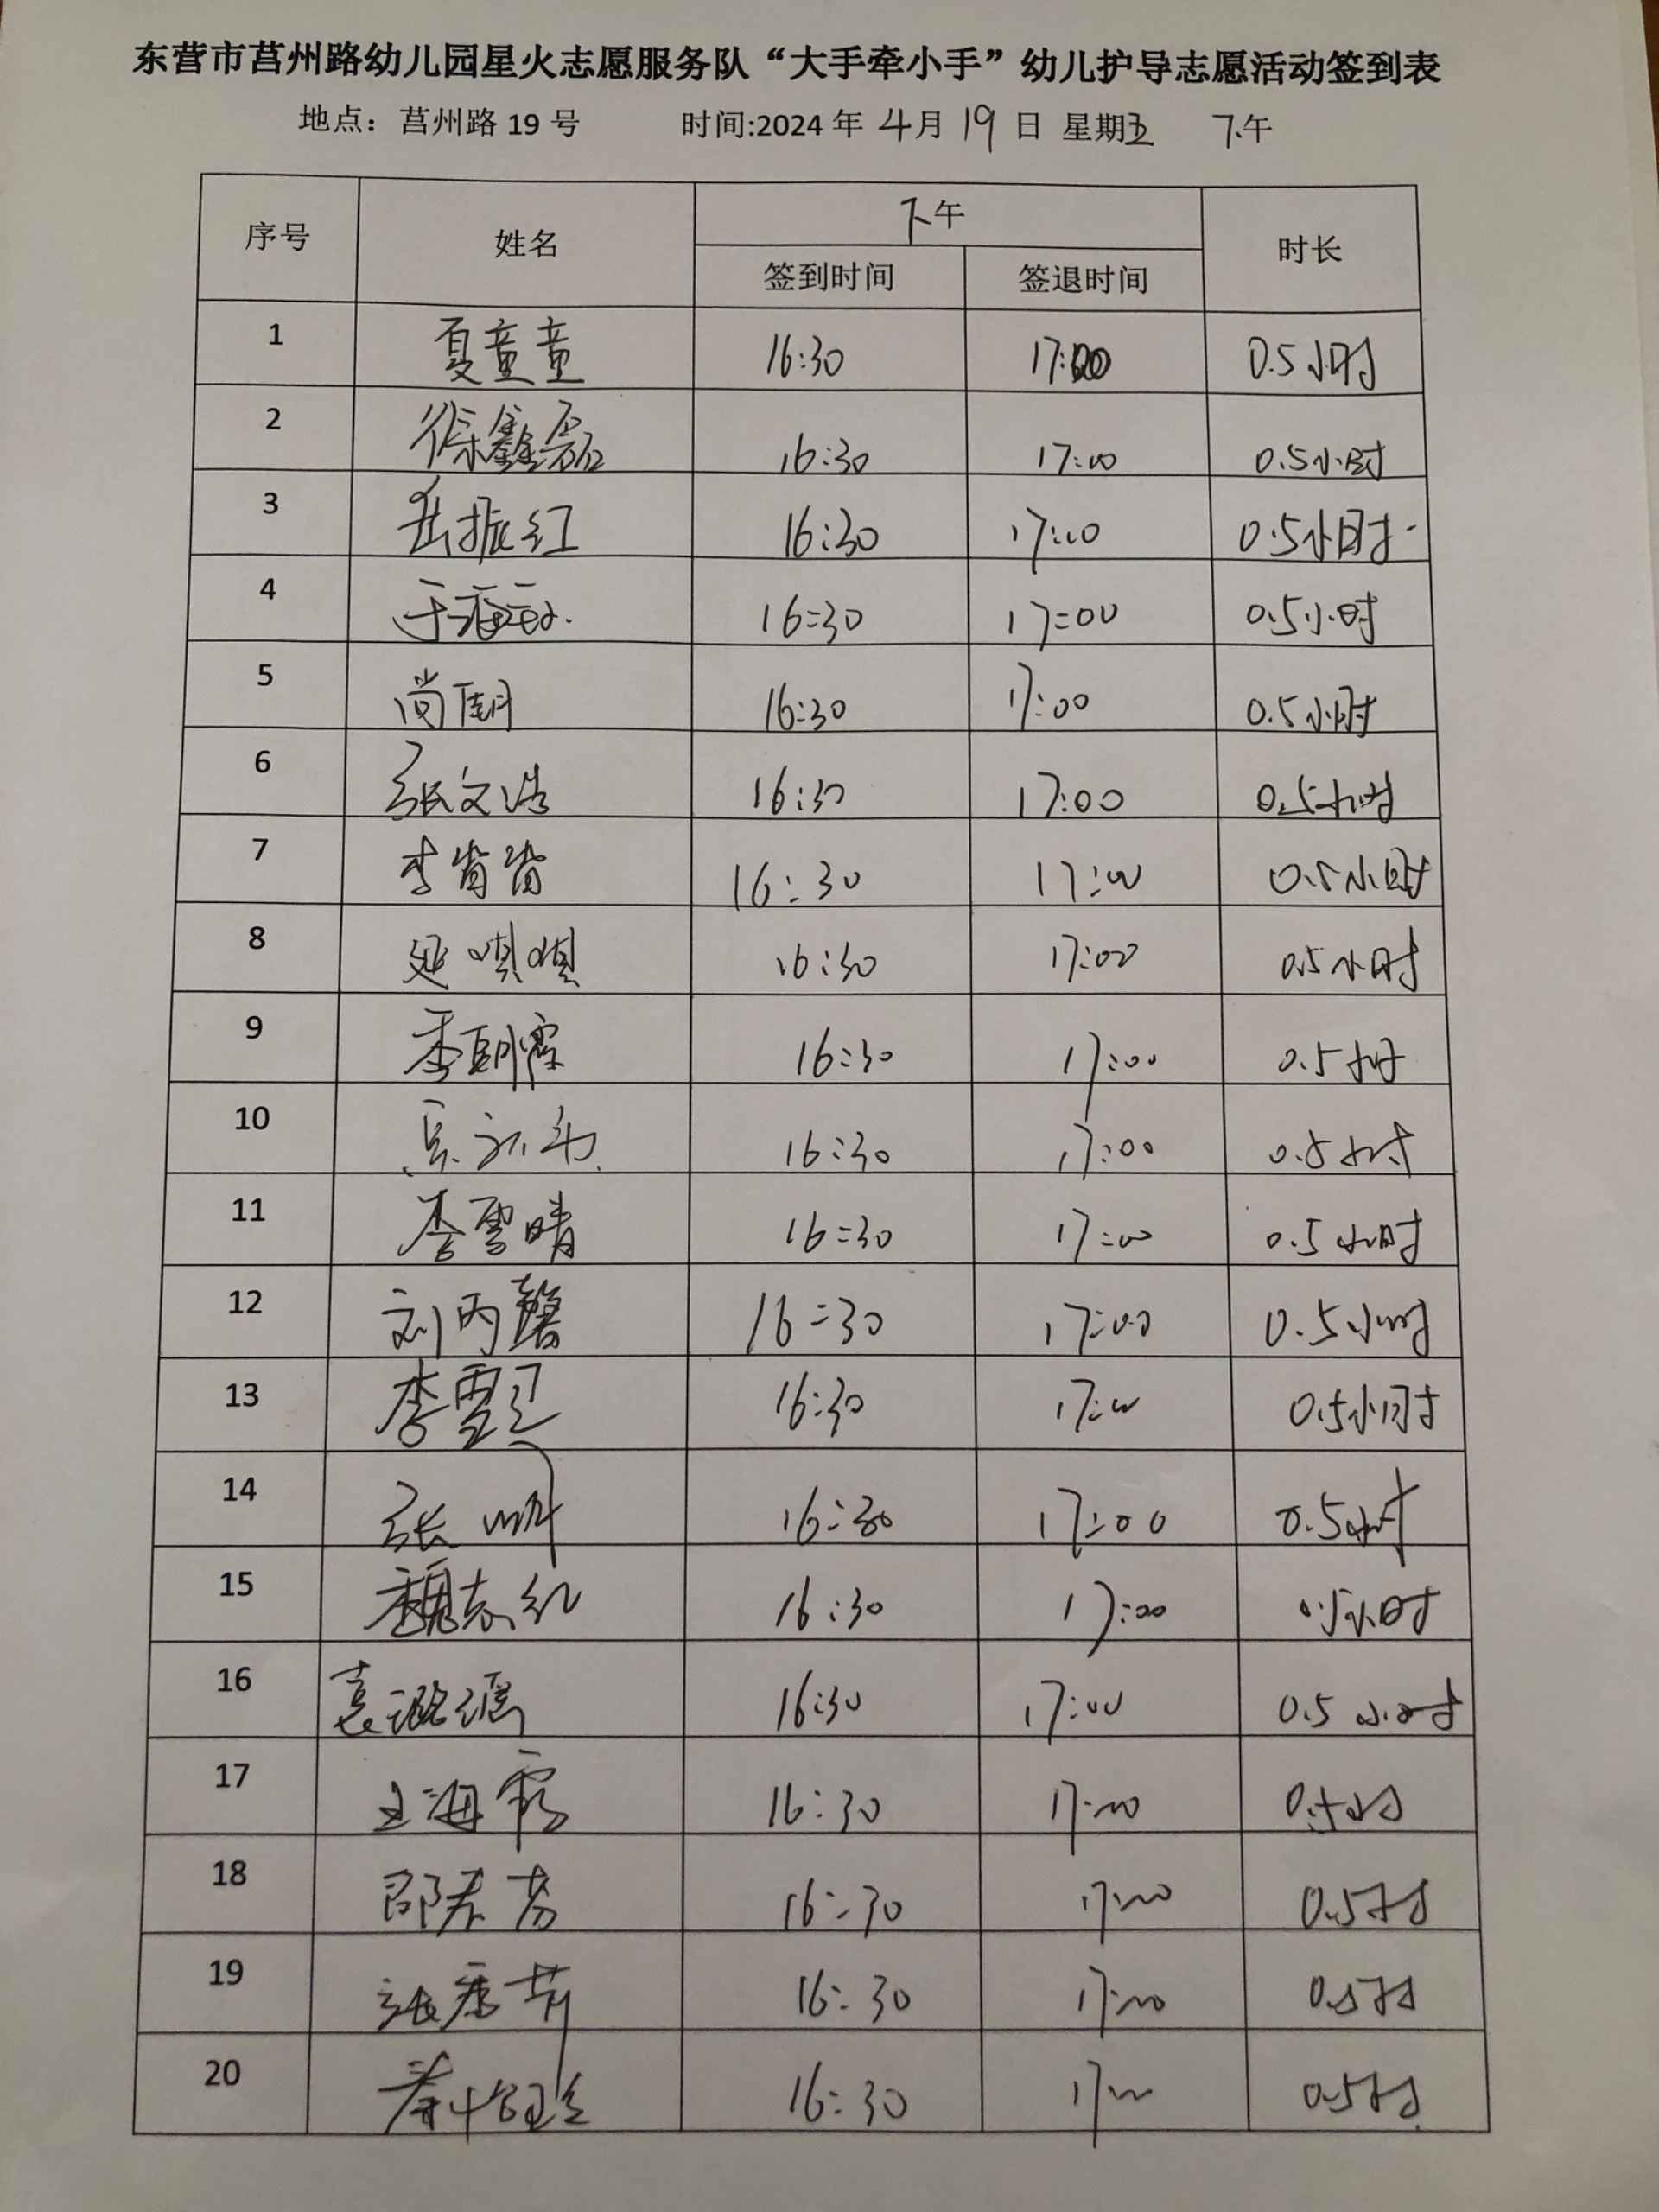 东营市莒州路幼儿园星火志愿服务队“大手牵小手”幼儿护导志愿活动签到表
地点：莒州路 19 号 时间:2024 年 4月 19 日 星期五 下午
序号 姓名 下午 时长
签到时间 签退时间
1 夏童童 16:30 17:00 0.5小时
2 徐鑫磊 16:30 17:00 0.5小时
3 岳振红 16:30 17:00 0.5小时
4 于 16:30 17:00 0.5小时
5 尚 16:30 17:00 0.5小时
6 张文浩 16:30 17:00 0.5小时
7 李肖肖 16:30 17:00 0.5小时
8 延琪琪 16:30 17:00 0.5小时
9 季朝霞 16:30 17:00 0.5小时
10 16:30 17:00 0.5小时
11 李雪晴 16:30 17:00 0.5小时
12 刘丙馨 16:30 17:00 0.5小时
13 李雪 16:30 17:00 0.5小时
14 张帅 16:30 17:00 0.5小时
15 魏志红 16:30 17:00 0.5小时
16 袁潞瑶 16:30 17:00 0.5小时
17 王海霞 16:30 17:00 0.5小时
18 邵春芳 16:30 17:00 0.5小时
19 张秀芹 16:30 17:00 0.5小时
20 16:30 17:00 0.5小时